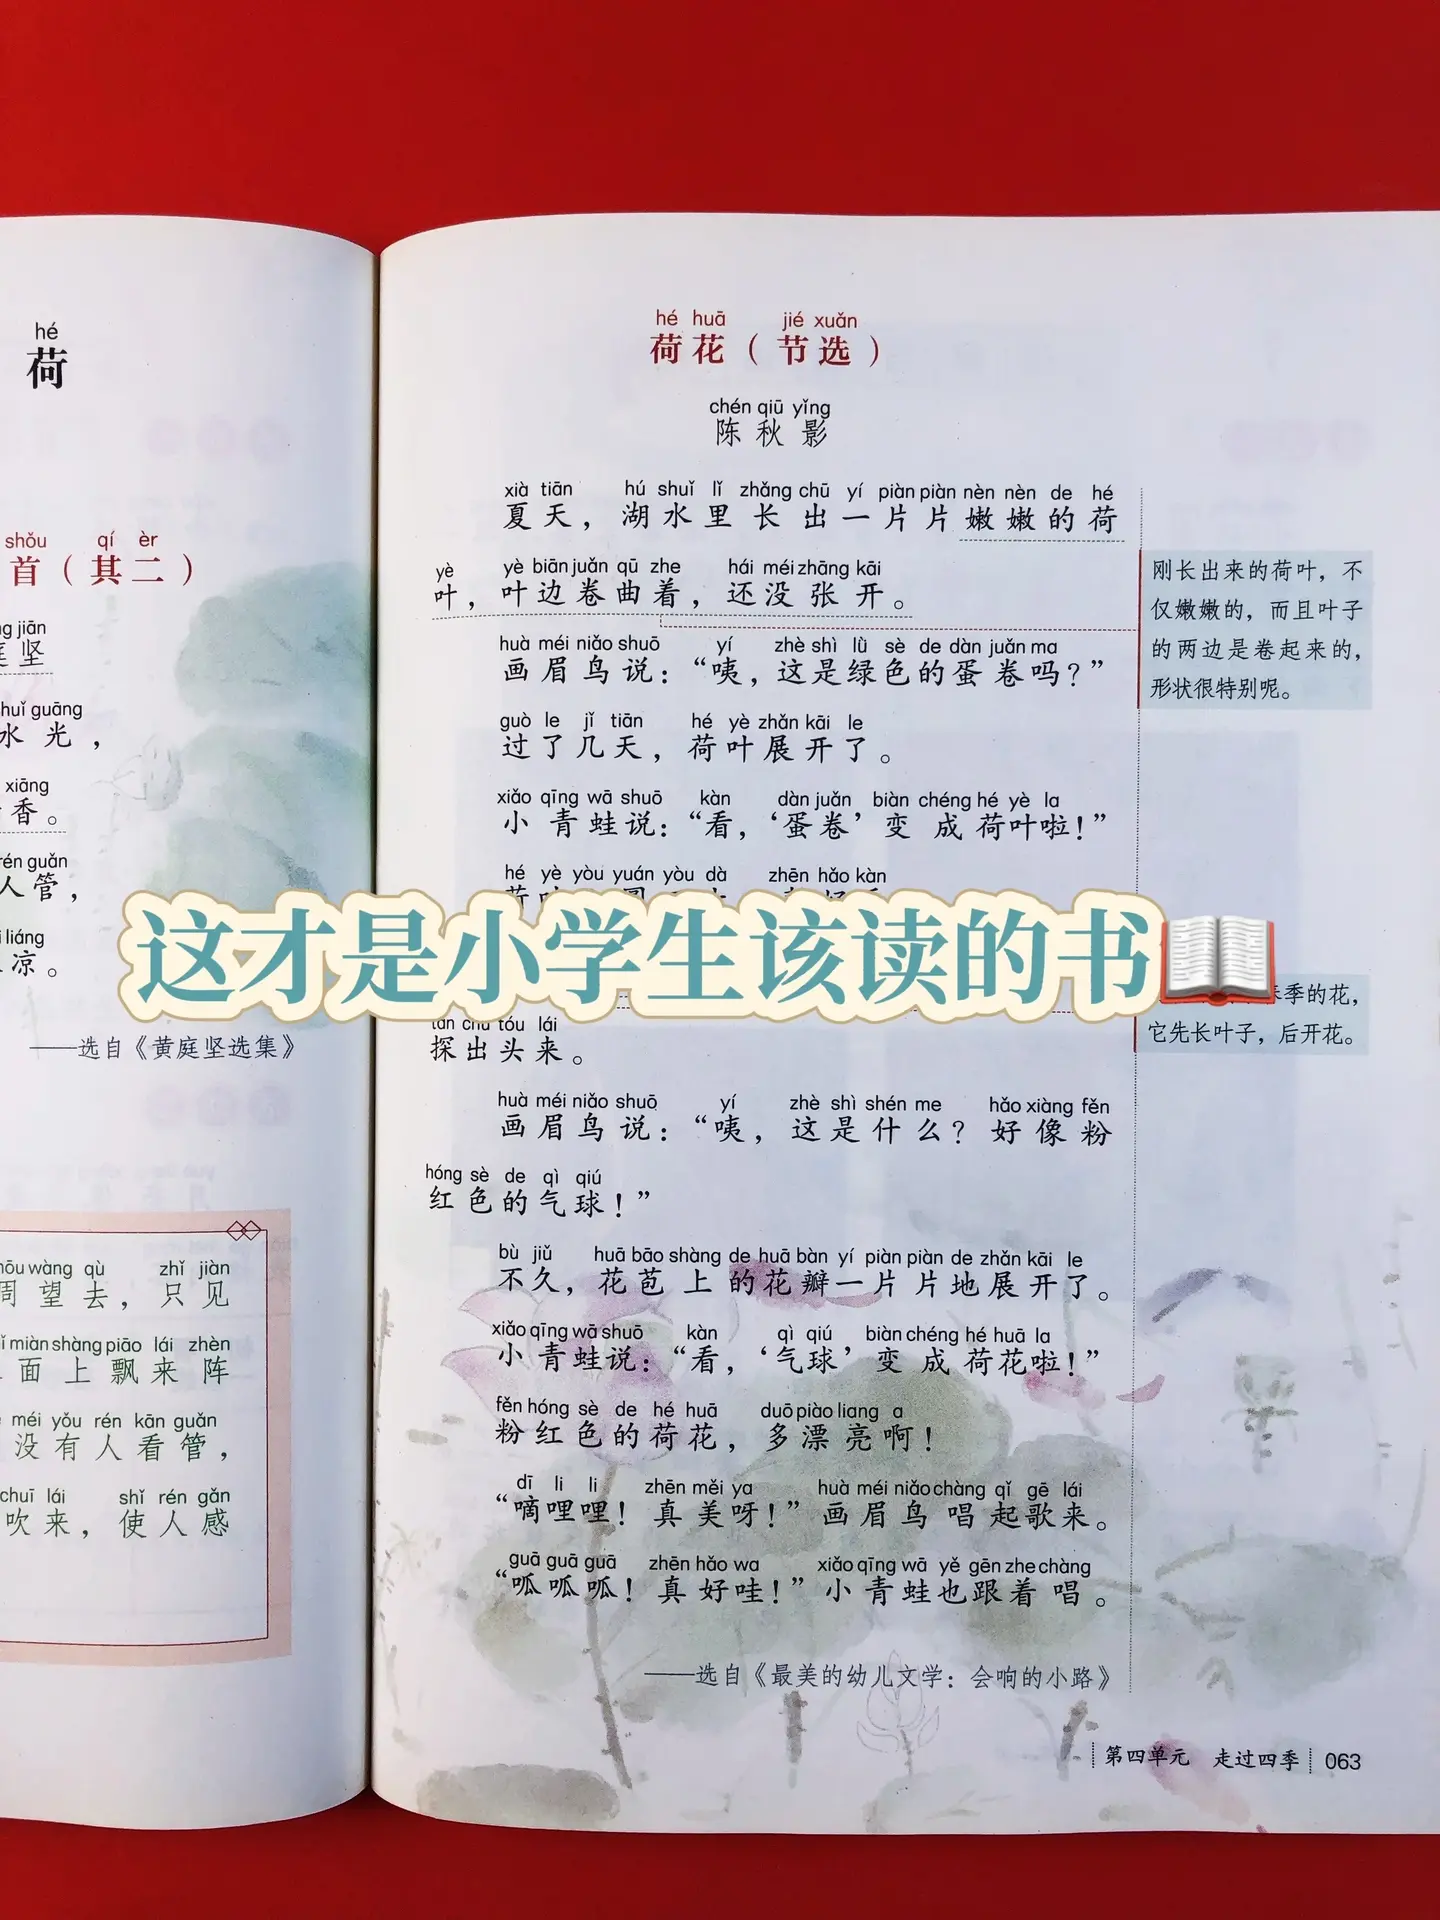 hé
荷
shǒu qí èr
首（其二）
jiān
庭坚
shuǐ guāng
水光，
xiāng
香。
rén guǎn
人管，
liáng
凉。
——选自《黄庭坚选集》
wàng qù zhǐ jiàn
周望去，只见
miàn shàng piāo lái zhèn
面上飘来阵
méi yǒu rén kān guǎn
没有人看管，
chuī lái shǐ rén gǎn
吹来，使人感
hé huā jié xuǎn
荷花（节选）
chén qiū yǐng
陈秋影
xià tiān hú shuǐ lǐ zhǎng chū yí piàn piàn nèn nèn de hé
夏天，湖水里长出一片片嫩嫩的荷
yè yè biān juǎn qū zhe hái méi zhāng kāi
叶，叶边卷曲着，还没张开。
huà méi niǎo shuō yí zhè shì lǜ sè de dàn juǎn ma
画眉鸟说：“咦，这是绿色的蛋卷吗？”
guò le jǐ tiān hé yè zhǎn kāi le
过了几天，荷叶展开了。
xiǎo qīng wā shuō kàn dàn juǎn biàn chéng hé yè la
小青蛙说：“看，‘蛋卷’变成荷叶啦！”
hé yè yòu yuán yòu dà zhēn hǎo kàn
这才是小学生该读的书
tàn chū tóu lái
探出头来。
huà méi niǎo shuō yí zhè shì shén me hǎo xiàng fěn
画眉鸟说：“咦，这是什么？好像粉
hóng sè de qì qiú
红色的气球！”
bù jiǔ huā bāo shàng de huā bàn yí piàn piàn de zhǎn kāi le
不久，花苞上的花瓣一片片地展开了。
xiǎo qīng wā shuō kàn qì qiú biàn chéng hé huā la
小青蛙说：“看，‘气球’变成荷花啦！”
fěn hóng sè de hé huā duō piào liang a
粉红色的荷花，多漂亮啊！
dī li li zhēn měi ya huà méi niǎo chàng qǐ gē lái
“嘀哩哩！真美呀！”画眉鸟唱起歌来。
guā guā guā zhēn hǎo wa xiǎo qīng wā yě gēn zhe chàng
“呱呱呱！真好哇！”小青蛙也跟着唱。
——选自《最美的幼儿文学：会响的小路》
刚长出来的荷叶，不
仅嫩嫩的，而且叶子
的两边是卷起来的，
形状很特别呢。
季的花，
它先长叶子，后开花。
第四单元 走过四季 063